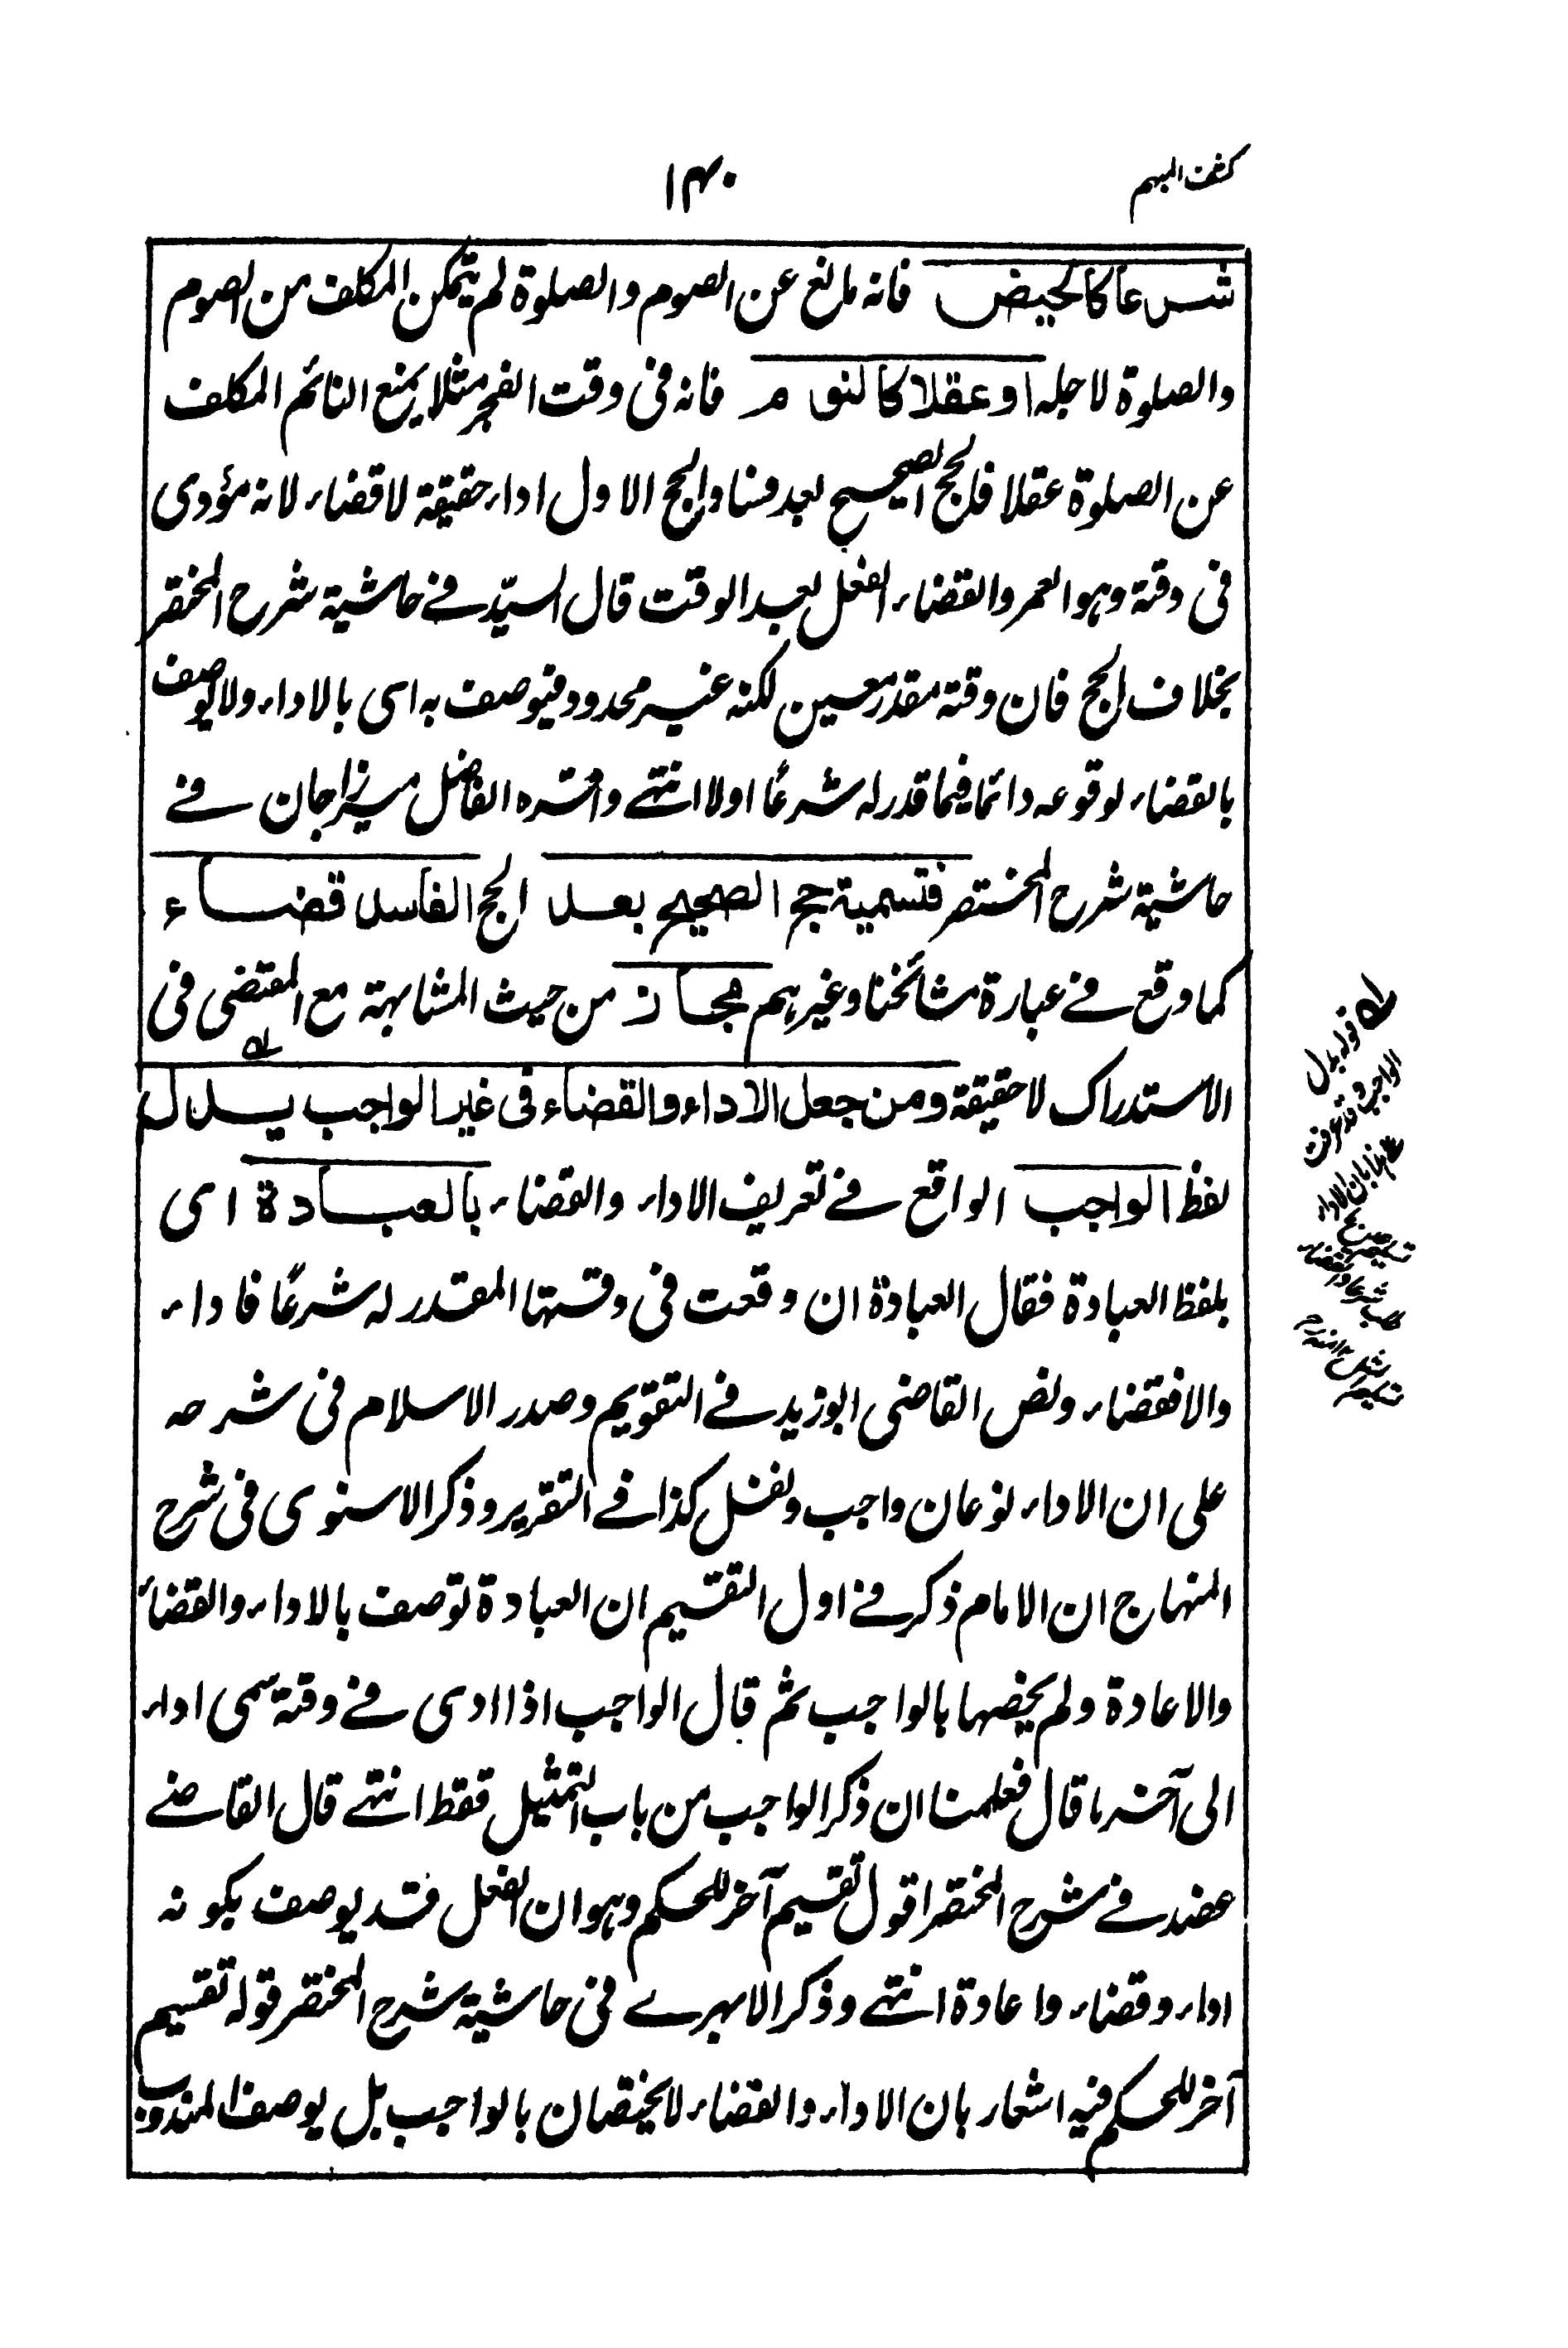 كشف المبهم
۱۴۰
شرعا كالحيض فانه مانع عن الصوم والصلوة لم يتمكن المكلف من الصوم
والصلوة لاجله او عقلا كالنوم فانه فى وقت الفجر مثلا يمنع النائم المكلف
عن الصلوة عقلا فالحج الصحيح بعد فساد الحج الاول اداء حقيقة لا قضاء لانه مؤدى
فى وقته وهو العمر والقضاء الفعل بعد الوقت قال السيّد فے حاشية شرح المختصر
بخلاف الحج فان وقته مقدر معين لكنه غير محدود فيوصف به اى بالاداء ولا يوصف
بالقضاء لوقوعه دائما فيما قدر له شرعًا اولا انتهے واقره الفاضل ميرزاجان فے
حاشية شرح المختصر فتسمية حج الصحيح بعد الحج الفاسد قضاء
كما وقع فے عبارة مشائخنا وغيرهم مجاز من حيث المشابهة مع المقتضى فى
الاستدراك لا حقيقة ومن جعل الاداء والقضاء فى غير الواجب يبدل
لفظ الواجب الواقع فے تعريف الاداء والقضاء بالعبادة اى
بلفظ العبادة فقال العبادة ان وقعت فى وقتها المقدر له شرعًا فاداء
والا فقضاء ونص القاضى ابوزيد فے التقويم وصدر الاسلام فى شرحه
على ان الاداء نوعان واجب ونفل كذا فے التقرير وذكر الاسنوى فى شرح
المنهاج ان الامام ذكر فے اول التقسيم ان العبادة توصف بالاداء والقضاء
والاعادة ولم يخصها بالواجب ثم قال الواجب اذا ادى فے وقته سمى اداء
الى آخر ما قال فعلمنا ان ذكر الواجب من باب التمثيل فقط انتهے قال القاضے
عضد فے شرح المختصر اقول تقسيم آخر للحكم وهو ان الفعل قد يوصف بكونه
اداء وقضاء واعادة انتهے وذكر الابهرے فى حاشية شرح المختصر قوله تقسيم
آخر للحكم فيه اشعار بان الاداء والقضاء لا يختصان بالواجب بل يوصف المندوب
قوله بدل
الواجب وقد عرفت